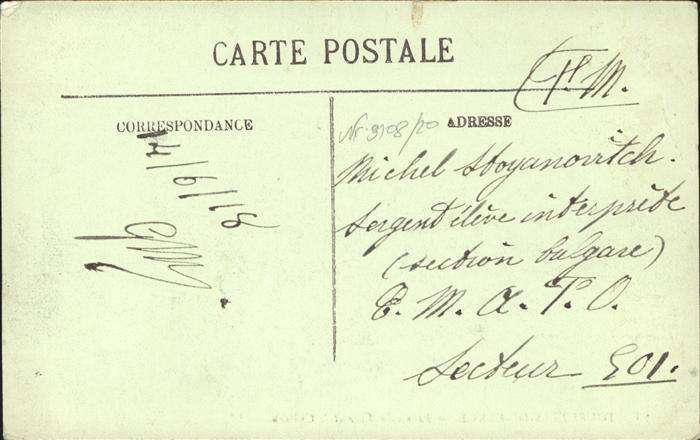 CARTE POSTALE
F.M.
CORRESPONDANCE
ADRESSE
Nr. 9108/20
17/6/18
Michel Stoyanovitch.
Sergent élève interprète
(section bulgare)
E. M. A. F. O.
Secteur 501.